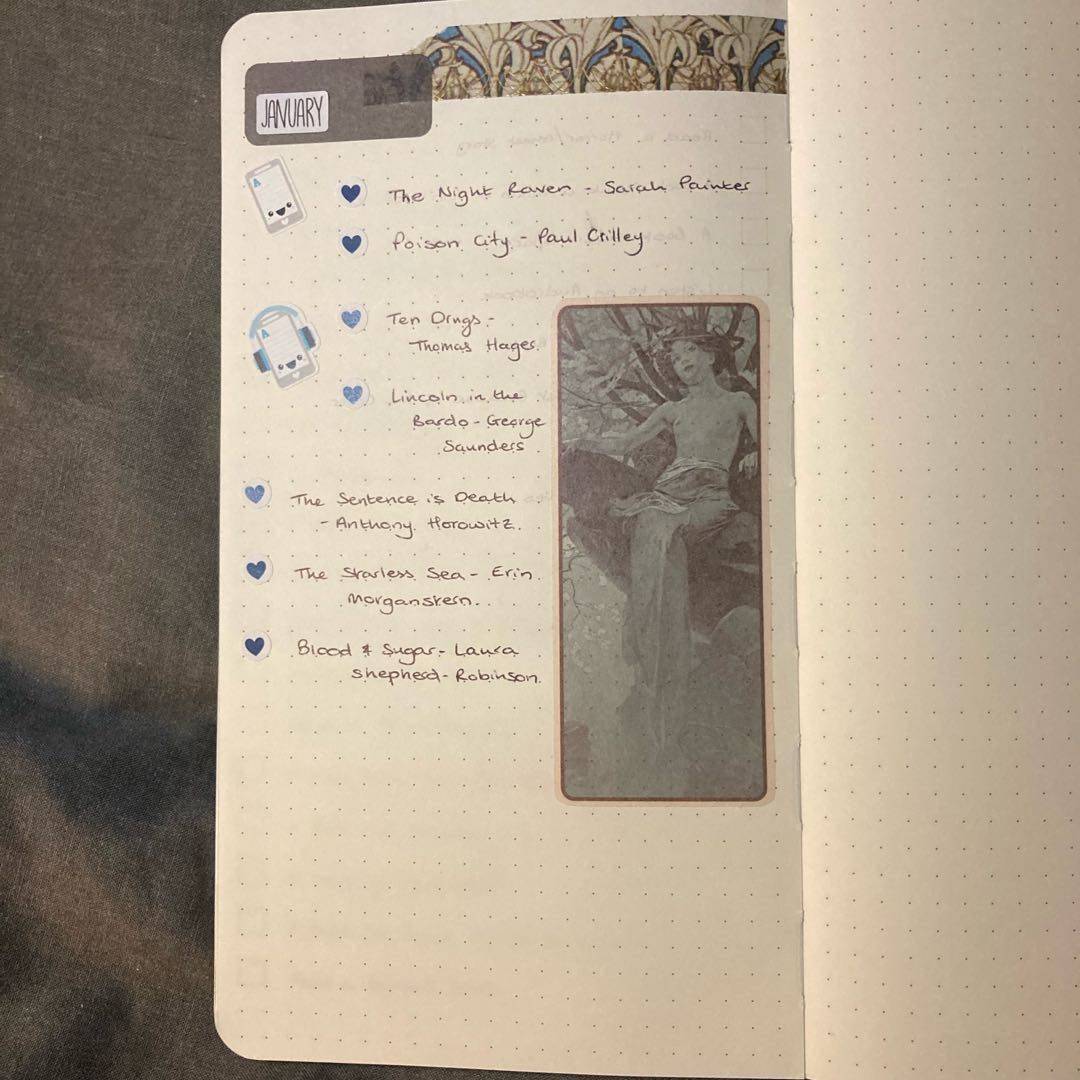 JANUARY
The Night Raven - Sarah Painter
Poison City - Paul Crilley
Ten Drugs -
Thomas Hager.
Lincoln in the
Bardo - George
Saunders
The Sentence is Death
- Anthony Horowitz.
The Starless Sea - Erin
Morganstern.
Blood & Sugar - Laura
Shepherd-Robinson.